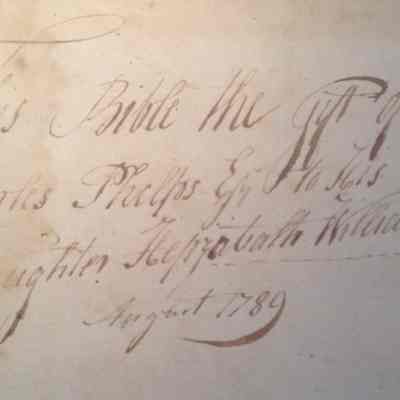 is Bible the gift of
rles Phelps Esq to his
ughter Hepzabath Willia
August 1789